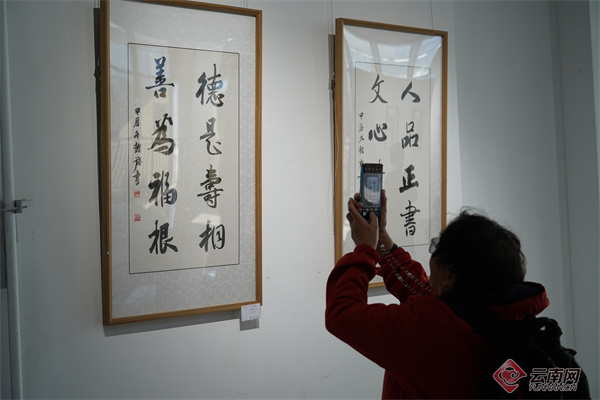 德是壽相
善為福根
甲辰冬
人品正書
文心
甲辰冬
云南网
YUNNAN.CN